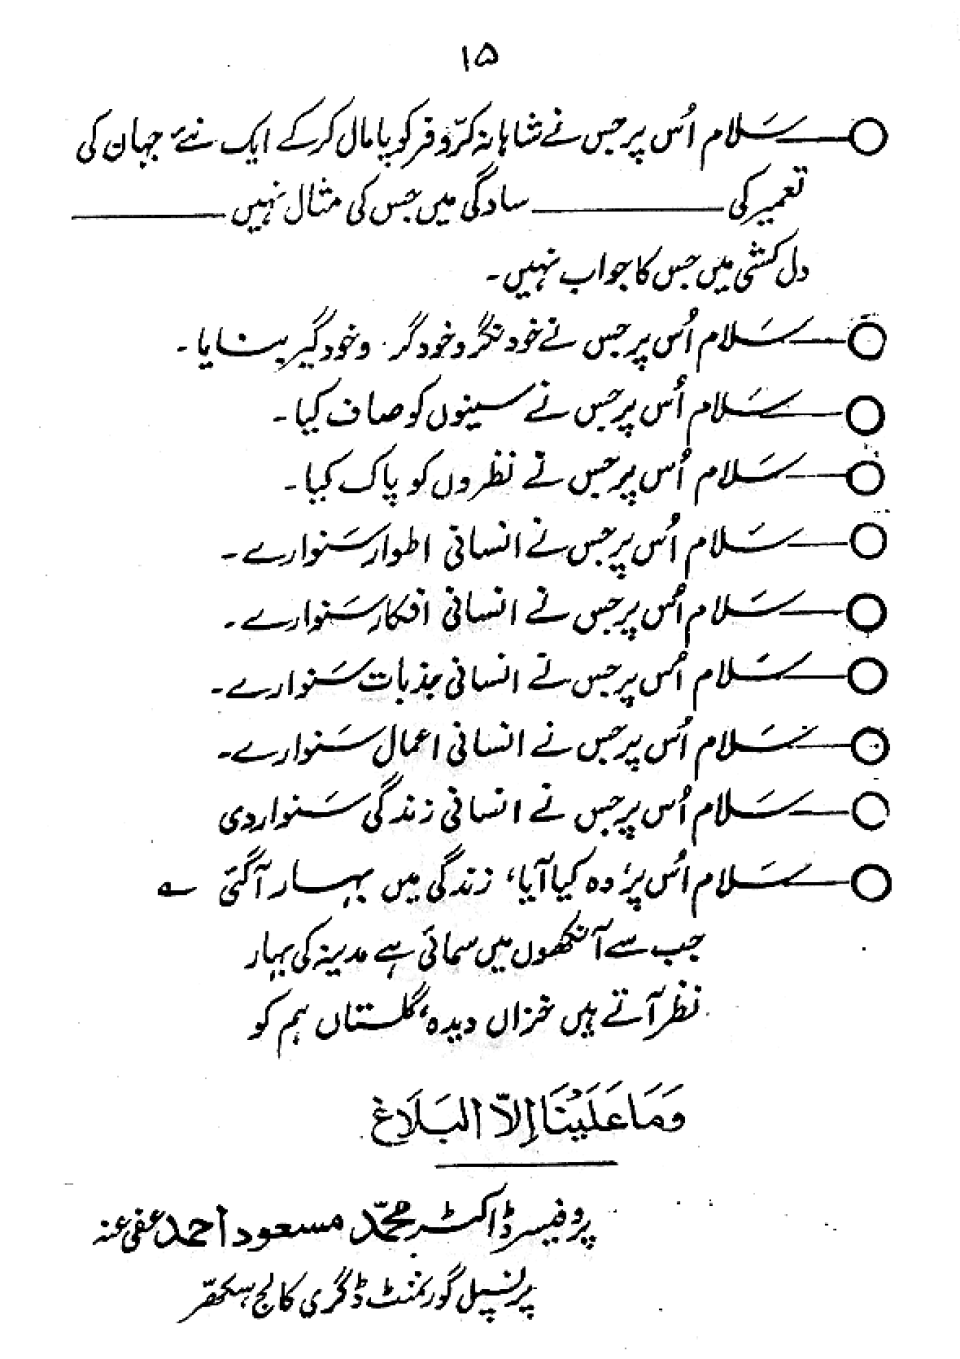 ۱۵
سَلام اُس پر جس نے شاہانہ کرّوفر کو پامال کرکے ایک نئے جہان کی
تعمیر کی ــــــ سادگی میں جس کی مثال نہیں ــــــ
دل کشی میں جس کا جواب نہیں۔
سَلام اُس پر جس نے خود نگر و خود گر و خود گیر بنایا۔
سَلام اُس پر جس نے سینوں کو صاف کیا۔
سَلام اُس پر جس نے نظروں کو پاک کیا۔
سَلام اُس پر جس نے انسانی اطوار سَنوارے۔
سَلام اُس پر جس نے انسانی افکار سَنوارے۔
سَلام اُس پر جس نے انسانی جذبات سَنوارے۔
سَلام اُس پر جس نے انسانی اعمال سَنوارے۔
سَلام اُس پر جس نے انسانی زندگی سَنوار دی
سَلام اُس پر، وہ کیا آیا، زندگی میں بہار آگئی ؎
جب سے آنکھوں میں سمائی ہے مدینہ کی بہار
نظر آتے ہیں خزاں دیدہ، گلستاں ہم کو
وَمَا عَلَيْنَا إِلاّ البَلَاغ
پروفیسر ڈاکٹر محمّد مسعود احمد عفی عنہ
پرنسپل گورنمنٹ ڈگری کالج سکھر